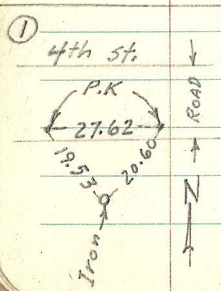 1
4th st.
P.K
27.62
19.53
20.60
Iron
ROAD
N